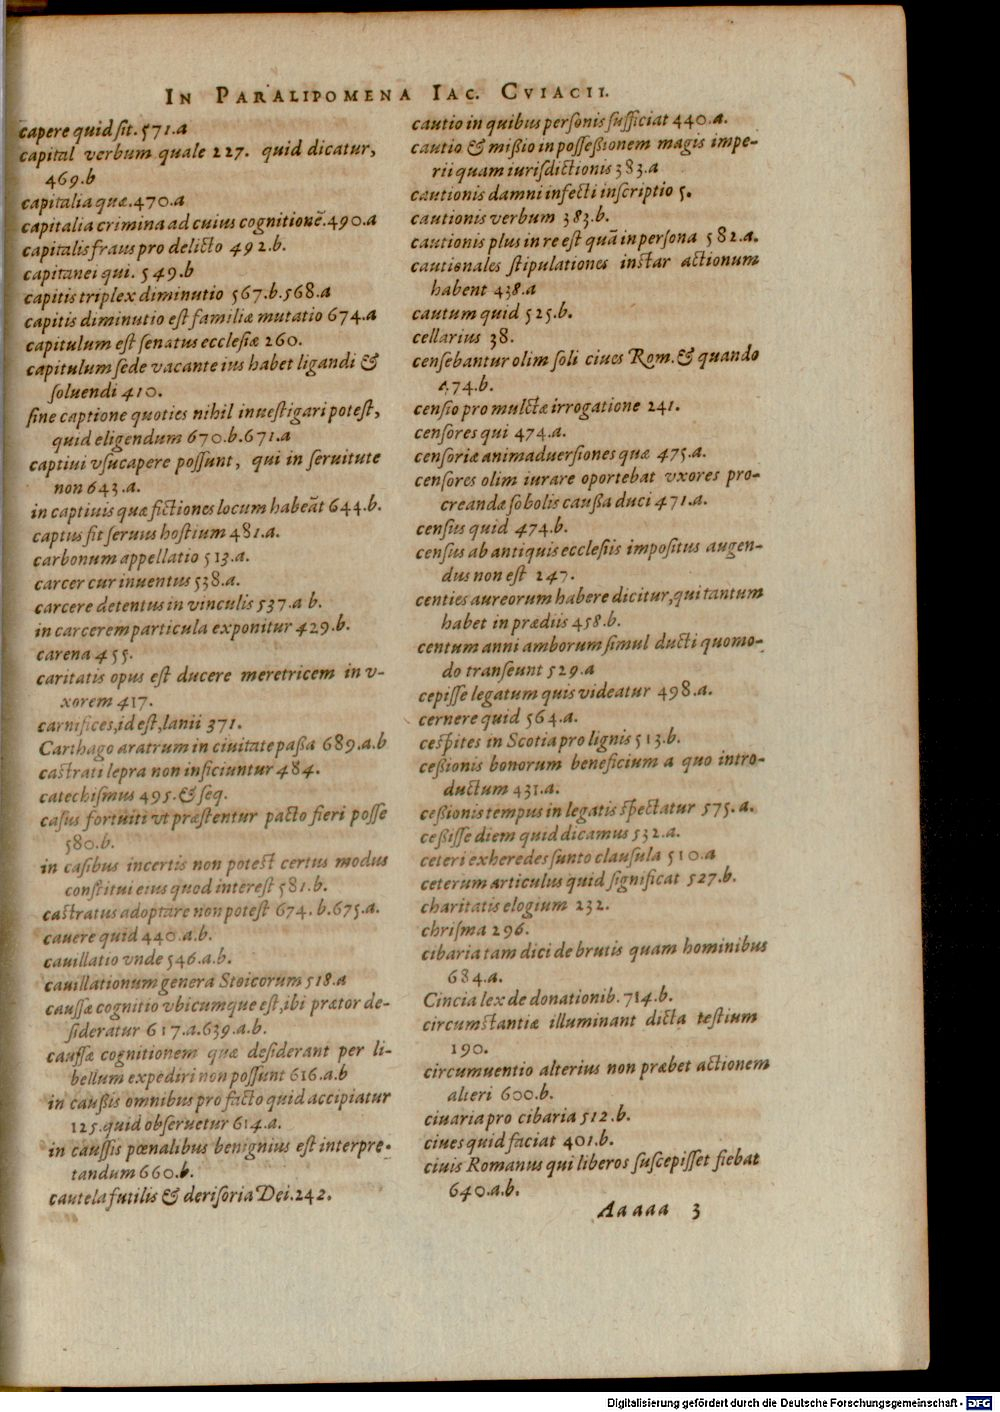 In Paralipomena Iac. Cviacii.
capere quid sit. 571.a
capital verbum quale 227. quid dicatur,
469.b
capitalia quæ.470.a
capitalia crimina ad cuius cognitionē.490.a
capitalis fraus pro delicto 492.b.
capitanei qui. 549.b
capitis triplex diminutio 567.b.568.a
capitis diminutio est familiæ mutatio 674.a
capitulum est senatus ecclesiæ 260.
capitulum sede vacante ius habet ligandi &
soluendi 410.
sine captione quoties nihil inuestigari potest,
quid eligendum 670.b.671.a
captiui vsucapere possunt, qui in seruitute
non 643.a.
in captiuis quæ fictiones locum habeāt 644.b.
captus fit seruus hostium 481.a.
carbonum appellatio 513.a.
carcer cur inuentus 538.a.
carcere detentus in vinculis 537.a b.
in carcerem particula exponitur 429.b.
carena 455.
caritatis opus est ducere meretricem in v-
xorem 417.
carnifices,id est,lanii 371.
Carthago aratrum in ciuitate passa 689.a.b
castrati lepra non inficiuntur 484.
catechismus 495.& seq.
casus fortuiti vt præstentur pacto fieri posse
580.b.
in casibus incertis non potest certus modus
constitui eius quod interest 581.b.
castratus adoptare non potest 674.b.675.a.
cauere quid 440.a.b.
cauillatio vnde 546.a.b.
cauillationum genera Stoicorum 518.a
caussæ cognitio vbicumque est,ibi prætor de-
sideratur 617.a.639.a.b.
caussæ cognitionem quæ desiderant per li-
bellum expediri non possunt 616.a.b
in caussis omnibus pro facto quid accipiatur
125.quid obseruetur 614.a.
in caussis pœnalibus benignius est interpre-
tandum 660.b.
cautela futilis & derisoria Dei.242.
cautio in quibus personis sufficiat 440.a.
cautio & missio in possessionem magis impe-
rii quam iurisdictionis 383.a
cautionis damni infecti inscriptio 5.
cautionis verbum 383.b.
cautionis plus in re est quā in persona 582.a.
cautionales stipulationes instar actionum
habent 438.a
cautum quid 525.b.
cellarius 38.
censebantur olim soli ciues Rom.& quando
474.b.
censio pro mulctæ irrogatione 241.
censores qui 474.a.
censoriæ animaduersiones quæ 475.a.
censores olim iurare oportebat vxores pro-
creandæ sobolis caussa duci 471.a.
census quid 474.b.
census ab antiquis ecclesiis impositus augen-
dus non est 247.
centies aureorum habere dicitur,qui tantum
habet in prædiis 458.b.
centum anni amborum simul ducti quomo-
do transeunt 529.a
cepisse legatum quis videatur 498.a.
cernere quid 564.a.
cespites in Scotia pro lignis 513.b.
cessionis bonorum beneficium a quo intro-
ductum 431.a.
cessionis tempus in legatis spectatur 575. a.
cessisse diem quid dicamus 532.a.
ceteri exheredes sunto clausula 510.a
ceterum articulus quid significat 527.b.
charitatis elogium 232.
chrisma 296.
cibaria tam dici de brutis quam hominibus
684.a.
Cincia lex de donationib. 714.b.
circumstantiæ illuminant dicta testium
190.
circumuentio alterius non præbet actionem
alteri 600.b.
ciuaria pro cibaria 512.b.
ciues quid faciat 401.b.
ciuis Romanus qui liberos suscepisset fiebat
640.a.b.
Aaaaa 3
Digitalisierung gefördert durch die Deutsche Forschungsgemeinschaft - DFG